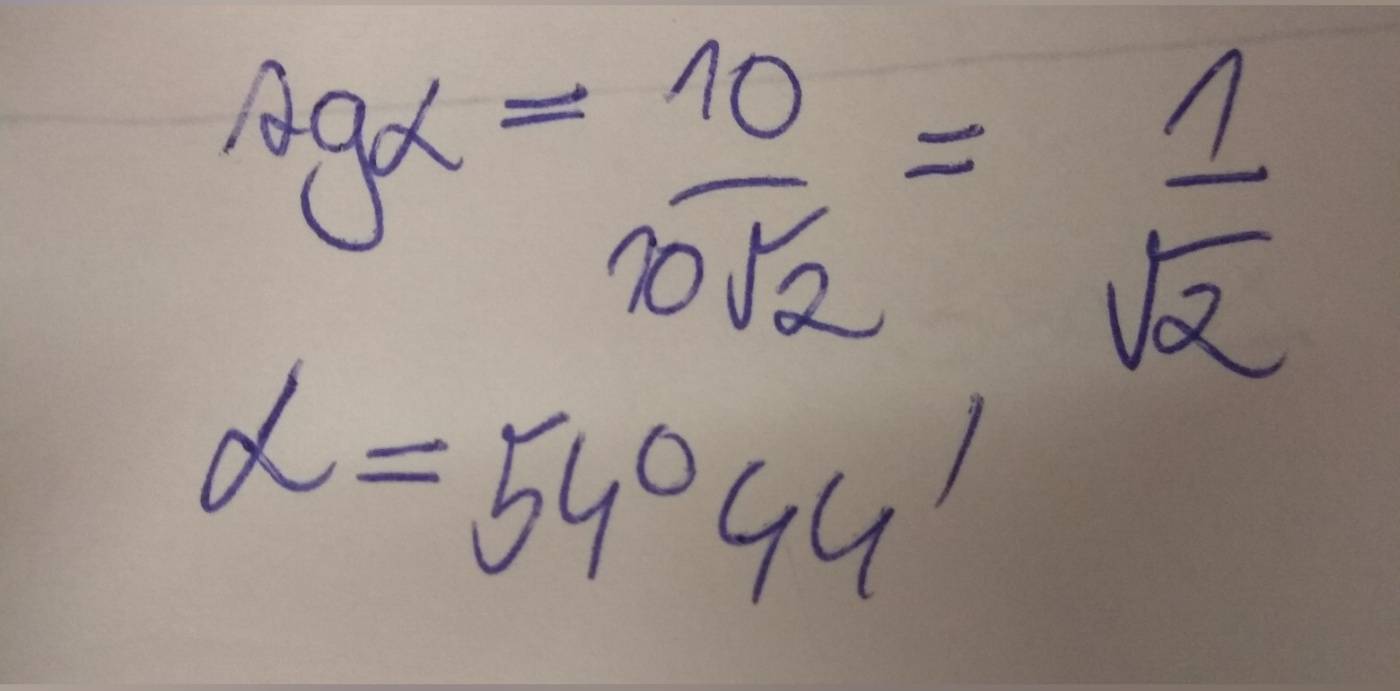 tgα = 10/10√2 = 1/√2
α = 54°44'